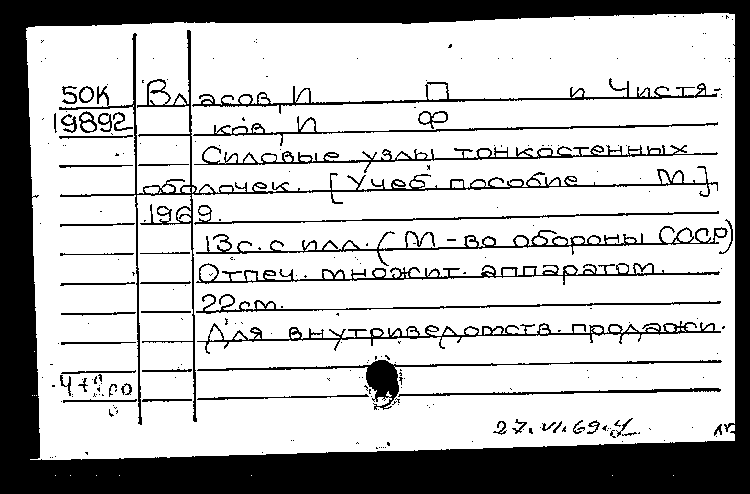 50К Власов, И П и Чистя-
19892 ков, И Ф
Силовые узлы тонкостенных
оболочек. [Учеб. пособие М.],
1969.
13с. с илл. (М-во обороны СССР)
Отпеч. множит. аппаратом.
22см.
Для внутриведомств. продажи.
27.VI.69.